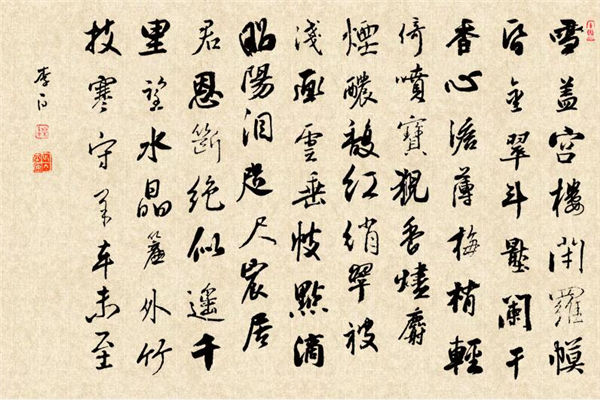 雪蓋宮樓閉羅幙
昏金翠斗壓闌干
香心澹薄梅梢輕
倚噴寶猊香燼麝
煙醲馥紅綃翠被
淺畫雲垂帔點滴
昭陽泪咫尺宸居
君恩斷絕似遙千
里望水晶簾外竹
枝寒守羊車未至
李白